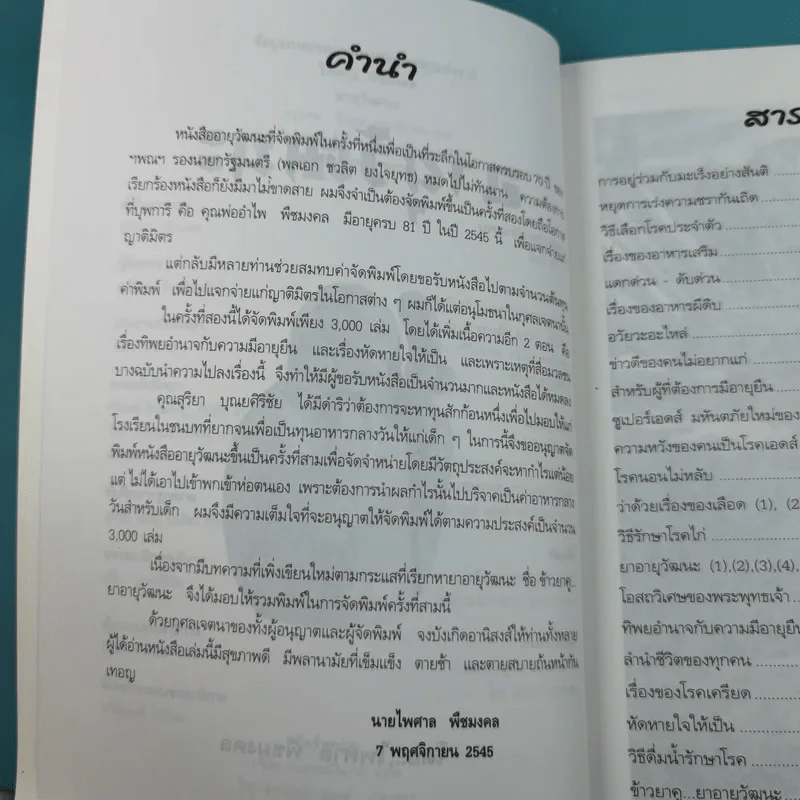 คำนำ
หนังสืออายุวัฒนะที่จัดพิมพ์ในครั้งที่หนึ่งเพื่อเป็นที่ระลึกในโอกาสครบรอบ 70 ปี ของ
ฯพณฯ รองนายกรัฐมนตรี (พลเอก ชวลิต ยงใจยุทธ) หมดไปไม่ทันนาน ความต้องการ
เรียกร้องหนังสือก็ยังมีมาไม่ขาดสาย ผมจึงจำเป็นต้องจัดพิมพ์ขึ้นเป็นครั้งที่สองโดยถือโอกาส
ที่บุพการี คือ คุณพ่ออำไพ พืชมงคล มีอายุครบ 81 ปี ในปี 2545 นี้ เพื่อแจกจ่ายแก่
ญาติมิตร
แต่กลับมีหลายท่านช่วยสมทบค่าจัดพิมพ์โดยขอรับหนังสือไปตามจำนวนต้นทุน
ค่าพิมพ์ เพื่อไปแจกจ่ายแก่ญาติมิตรในโอกาสต่าง ๆ ผมก็ได้แต่อนุโมธนาในกุศลเจตนานั้น
ในครั้งที่สองนี้ได้จัดพิมพ์เพียง 3,000 เล่ม โดยได้เพิ่มเนื้อความอีก 2 ตอน คือ
เรื่องทิพยอำนาจกับความมีอายุยืน และเรื่องหัดหายใจให้เป็น และเพราะเหตุที่สื่อมวลชน
บางฉบับนำความไปลงเรื่องนี้ จึงทำให้มีผู้ขอรับหนังสือเป็นจำนวนมากและหนังสือได้หมดลง
คุณสุริยา บุณยศิริชัย ได้มีดำริว่าต้องการจะหาทุนสักก้อนหนึ่งเพื่อไปมอบให้แก่
โรงเรียนในชนบทที่ยากจนเพื่อเป็นทุนอาหารกลางวันให้แก่เด็ก ๆ ในการนี้จึงขออนุญาตจัด
พิมพ์หนังสืออายุวัฒนะขึ้นเป็นครั้งที่สามเพื่อจัดจำหน่ายโดยมีวัตถุประสงค์จะหากำไรแต่น้อย
แต่ไม่ได้เอาไปเข้าพกเข้าห่อตนเอง เพราะต้องการนำผลกำไรนั้นไปบริจาคเป็นค่าอาหารกลาง
วันสำหรับเด็ก ผมจึงมีความเต็มใจที่จะอนุญาตให้จัดพิมพ์ได้ตามความประสงค์เป็นจำนวน
3,000 เล่ม
เนื่องจากมีบทความที่เพิ่งเขียนใหม่ตามกระแสที่เรียกหายาอายุวัฒนะ ชื่อ ข้าวยาคู...
ยาอายุวัฒนะ จึงได้มอบให้รวมพิมพ์ในการจัดพิมพ์ครั้งที่สามนี้
ด้วยกุศลเจตนาของทั้งผู้อนุญาตและผู้จัดพิมพ์ จงบังเกิดอานิสงส์ให้ท่านทั้งหลาย
ผู้ได้อ่านหนังสือเล่มนี้มีสุขภาพดี มีพลานามัยที่เข้มแข็ง ตายช้า และตายสบายถ้วนหน้ากัน
เทอญ
นายไพศาล พืชมงคล
7 พฤศจิกายน 2545
สาร
การอยู่ร่วมกับมะเร็งอย่างสันติ
หยุดการเร่งความชรากันเถิด
วิธีเลือกโรคประจำตัว
เรื่องของอาหารเสริม
แดกด่วน - ดับด่วน
เรื่องของอาหารผีดิบ
อวัยวะอะไหล่
ข่าวดีของคนไม่อยากแก่
สำหรับผู้ที่ต้องการมีอายุยืน
ซูเปอร์เอดส์ มหันตภัยใหม่ของ
ความหวังของคนเป็นโรคเอดส์
โรคนอนไม่หลับ
ว่าด้วยเรื่องของเลือด (1), (2
วิธีรักษาโรคไก่
ยาอายุวัฒนะ (1),(2),(3),(4),
โอสถวิเศษของพระพุทธเจ้า
ทิพยอำนาจกับความมีอายุยืน
ลำนำชีวิตของทุกคน
เรื่องของโรคเครียด
หัดหายใจให้เป็น
วิธีดื่มน้ำรักษาโรค
ข้าวยาคู...ยาอายุวัฒนะ